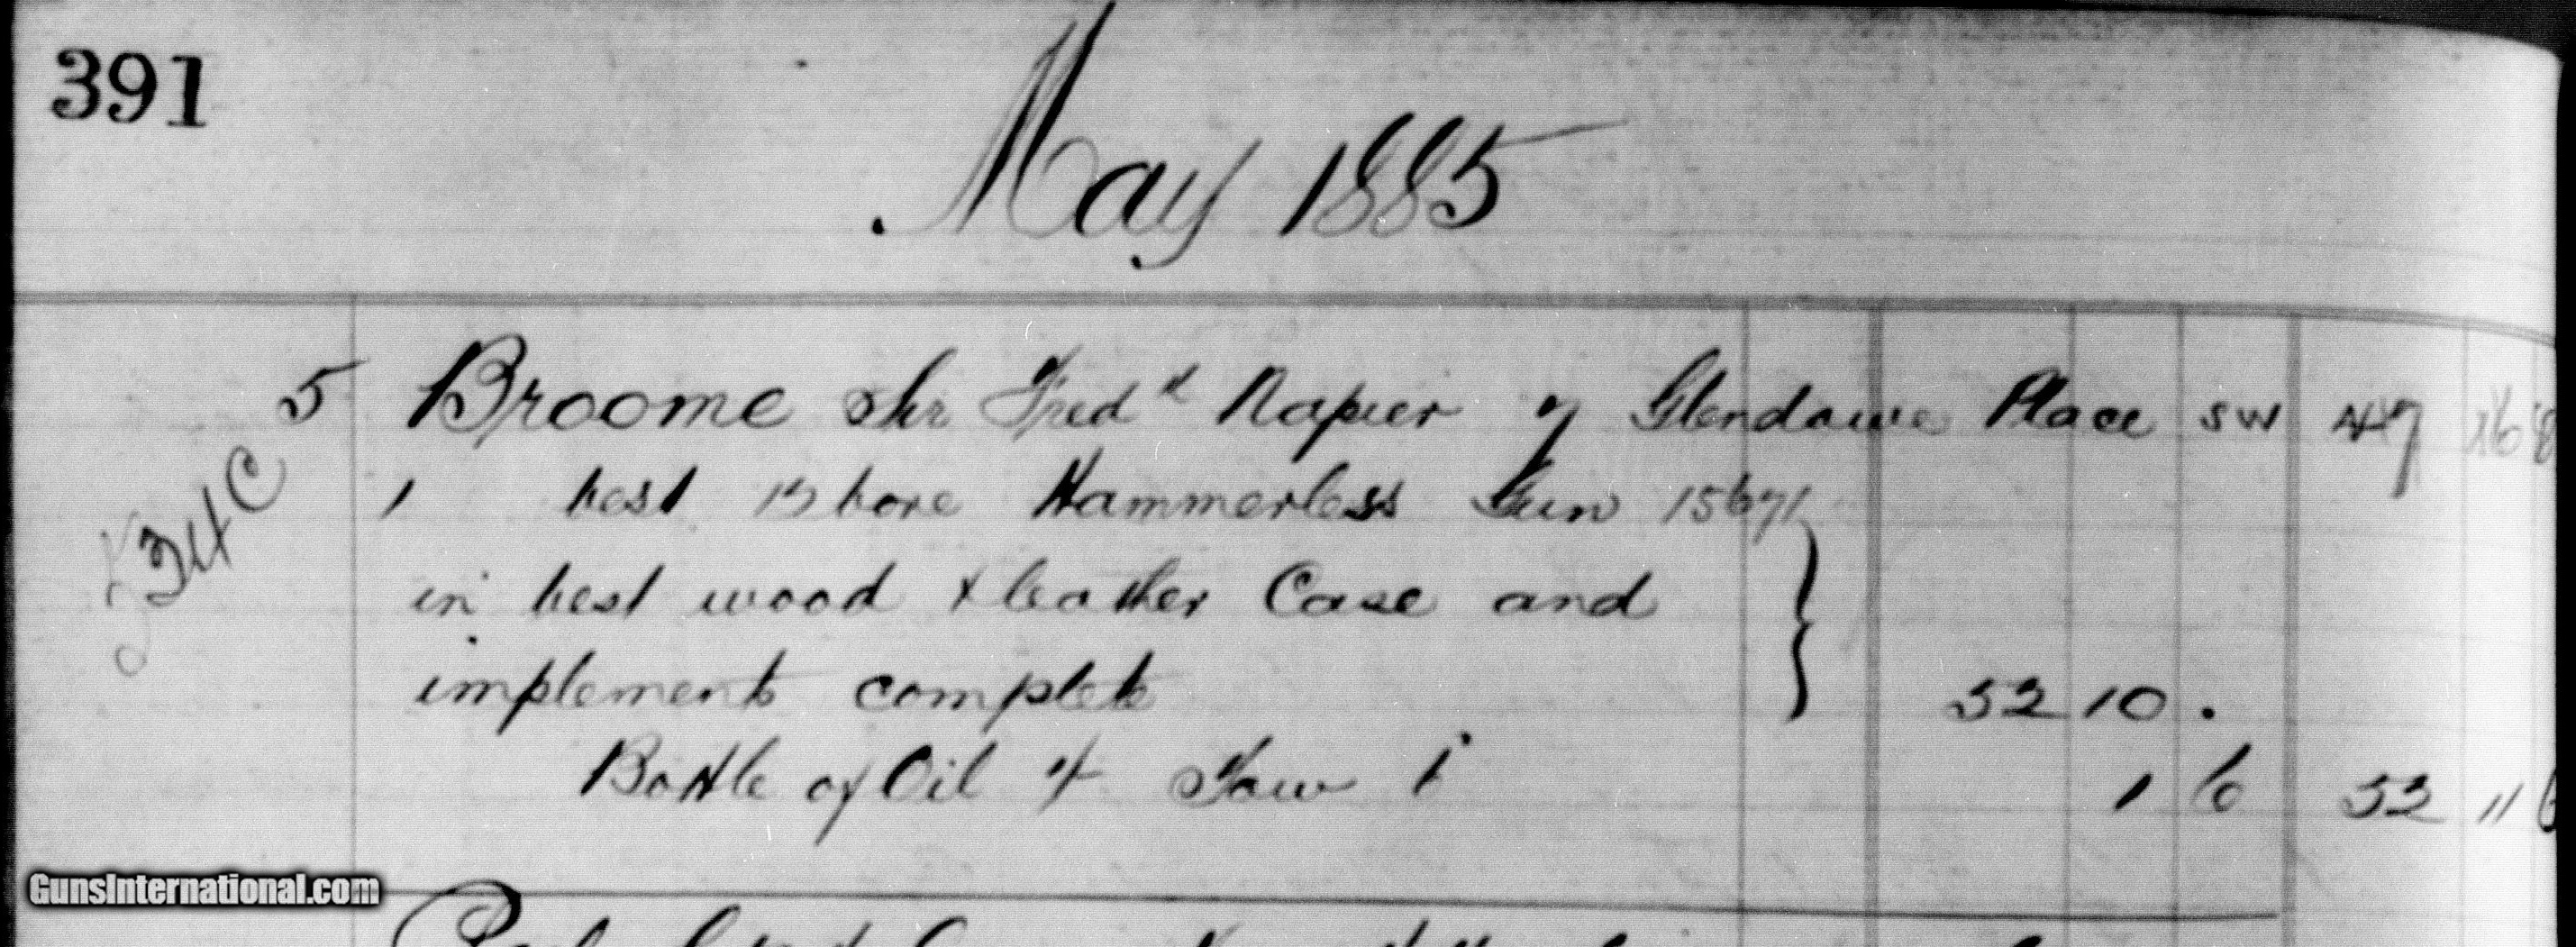 391
May 1885
5 Broome Sir Fred^k Napier 7 Glendower Place SW 47 16 8
1 best 12 bore Hammerless Gun 15671
in best wood & leather Case and
implements complete 52 10 .
Bottle of Oil 4 Tow 1/ 1 6 52 11 6
34C
GunsInternational.com